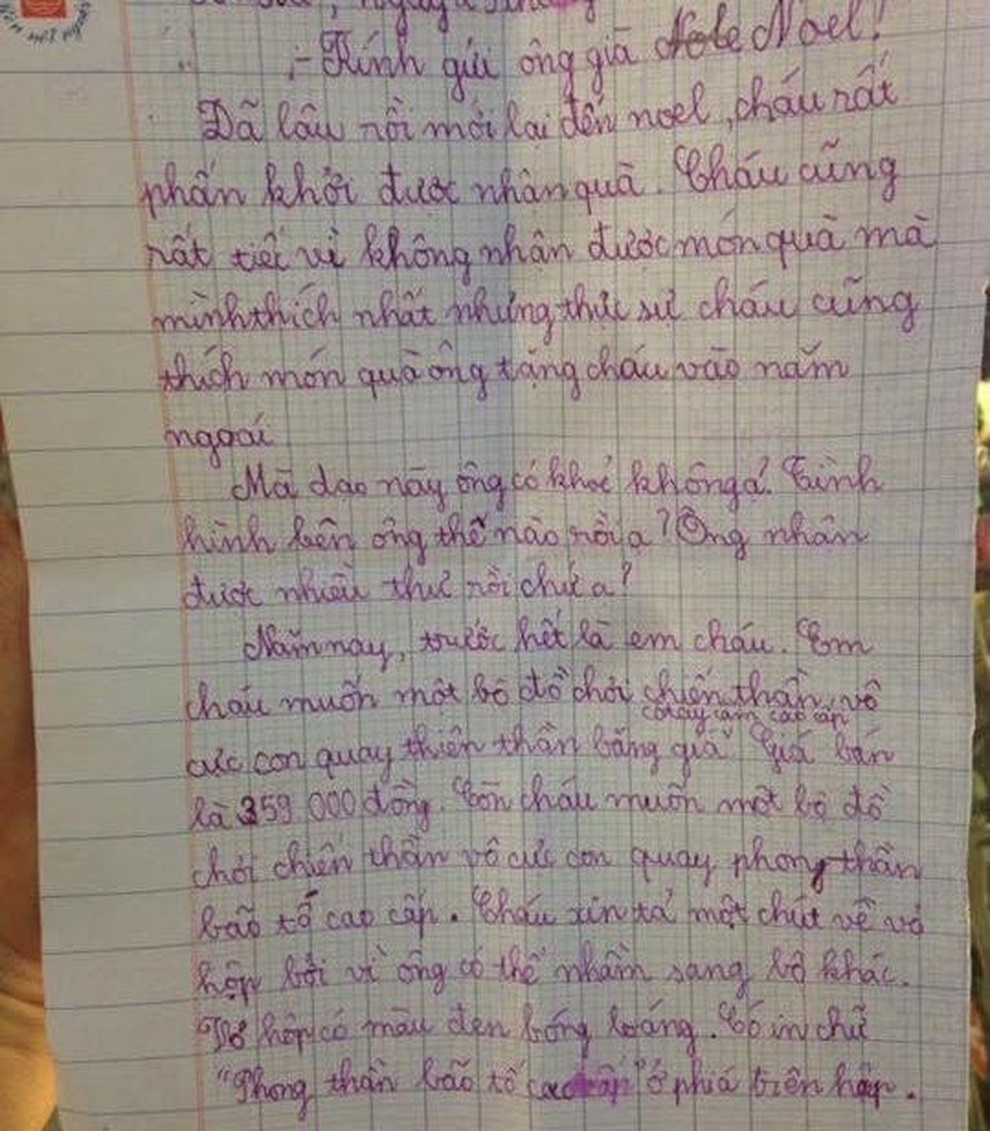 - Kính gửi ông già Nole Noel!
Dã lâu rồi mới lại đến noel, cháu rất
phấn khởi được nhận quà. Cháu cũng
rất tiếi vì không nhận được món quà mà
mình thích nhất nhưng thực sự cháu cũng
thích món quà ông tặng cháu vào năm
ngoái
Mà dạo này ông có khoẻ không ạ? Tình
hình bên ông thế nào rồi ạ? Ông nhận
được nhiều thư rồi chứ ạ?
Năm nay, trước hết là em cháu. Em
cháu muốn một bộ đồ chơi chiến thần vô
có dây cầm cao cấp
cực con quay thiên thần băng giá. Giá bán
là 359 000 đồng. Còn cháu muốn một bộ đồ
chơi chiến thần vô cực con quay phong thần
bão tố cao cấp. Cháu xin tả một chút về vỏ
hộp bởi vì ông có thể nhầm sang bộ khác.
Vỏ hộp có màu đen bóng loáng. Có in chữ
"Phong thần bão tố cao cấp" ở phiá trên hộp.